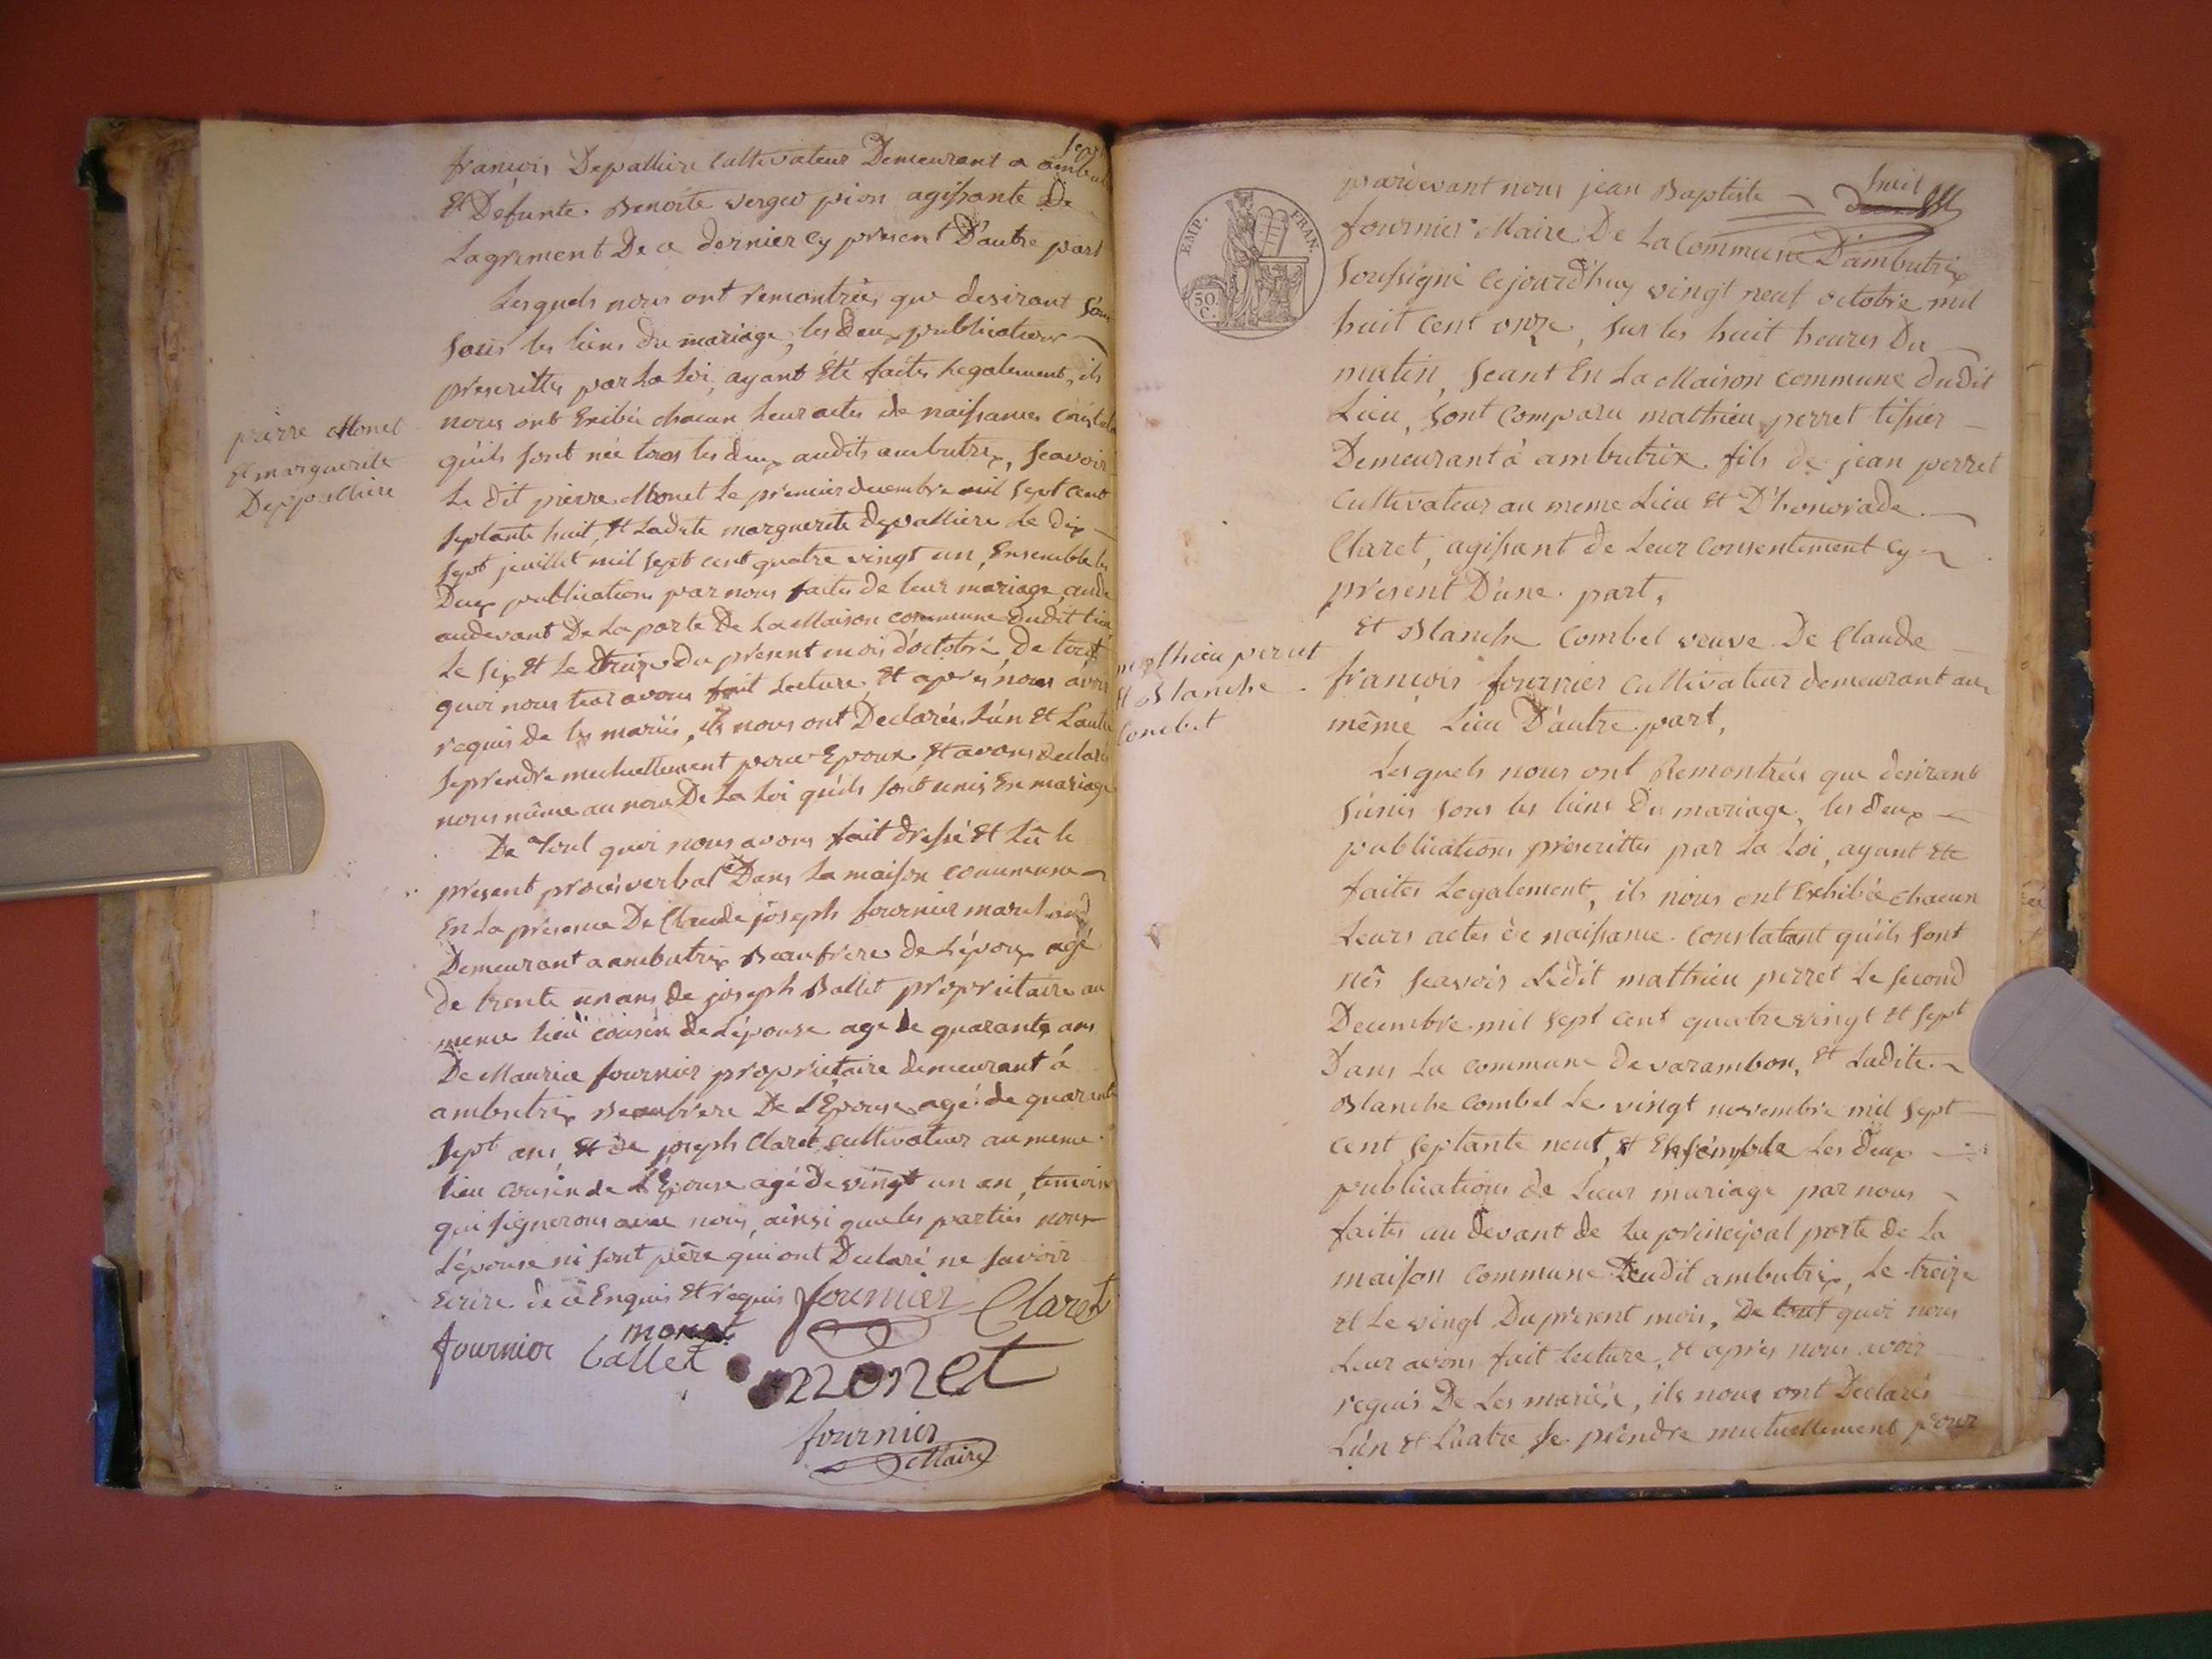 Sept
françois Depalliere Cultivateur Demeurant a ambut
Et Defunte Benoite vergeo pion agissante De
Lagrement De ce dernier Cy present D'autre part
Lesquels nous ont remontrées que desirant s'un
sous les liens du mariage, les deux publications
prescrittes par La Loi, ayant Eté faites Legalement, ils
nous ont Exibée chacun Leur actes de naissances const
qu'ils sont née tous les deux audits ambutrix, scavoir
Le dit pierre Monet Le premier decembre mil sept cent
septante huit, Et Ladite marguerite depalliere Le dix
sept juillet mil sept cent quatre vingt un, Ensemble les
Deux publications par nous faites de leur mariage, aude
audevant De La porte De La Maison commune dudit lieu
Le six Et Le treize du present mois d'octobre, De tout
quoi nous leur avons fait Lecture, Et après nous avoir
requis de les mariés, ils nous ont Declarées L'un Et L'autre
se prendre mutuellement pour Epoux, Et avons Declaré
nous même au nom De La Loi qu'ils sont unis En mariage
De Tout quoi nous avons fait dressé Et Lû le
present procès verbal Dans La maison commune
En La presence De Claude joseph fournier marchand
Demeurant a ambutrix Beaufrere de L'époux agé
de trente un ans de joseph Ballet propriétaire au
meme lieu cousin de L'épouse age de quarante ans
De Maurice fournier propriétaire demeurant à
ambutrix Beaufrere De L'Epouse agé de quarante
sept ans Et de joseph Claret cultivateur au meme
lieu cousin de L'Epouse agé De vingt un an, temoins
qui signerons avec nous, ainsi que les parties non
L'épouse ni sont père qui ont Declaré ne savoir
Ecrire de ce Enquis Et requis fournier Claret
fournier Ballet monet
monet
fournier
Maire
pierre Monet
Et marguerite
Deppalliere
huit
pardevant nous jean Baptiste
fournier Maire De La Commune D'ambutrix
soussigné cejourd'huy vingt neuf octobre mil
huit cent onze, sur les huit heures Du
matin, seant En La Maison commune dudit
Lieu, sont comparu mathieu perret tissier
Demeurant à ambutrix fils de jean perret
cultivateur au meme Lieu Et D'honorade
Claret, agissant de Leur consentement cy
present D'une part,
Et Blanche Combet veuve De Claude
françois fournier cultivateur demeurant au
même Lieu D'autre part,
Lesquels nous ont Remontrées que desirant
s'unir sous les liens Du mariage, les deux
publications prescrittes par La Loi, ayant Eté
faites Legalement, ils nous ont Exhibée chacun
Leurs actes de naissance constatant qu'ils sont
nés scavoir Ledit mathieu perret Le second
Decembre mil sept cent quatre vingt Et sept
Dans La commune de varambon, Et Ladite
Blanche Combet Le vingt novembre mil sept
cent septante neuf, Et Ensemble Les deux
publications de Leur mariage par nous
faites au devant de La principal porte de La
maison commune Dudit ambutrix, Le treize
Et Le vingt Du present mois, De tout quoi nous
Leur avons fait Lecture, Et après nous avoir
requis De Les mariés, ils nous ont Declarés
L'un Et L'autre se prendre mutuellement pour
EMP. FRAN.
50 C.
mathieu perret
Et Blanche
Combet